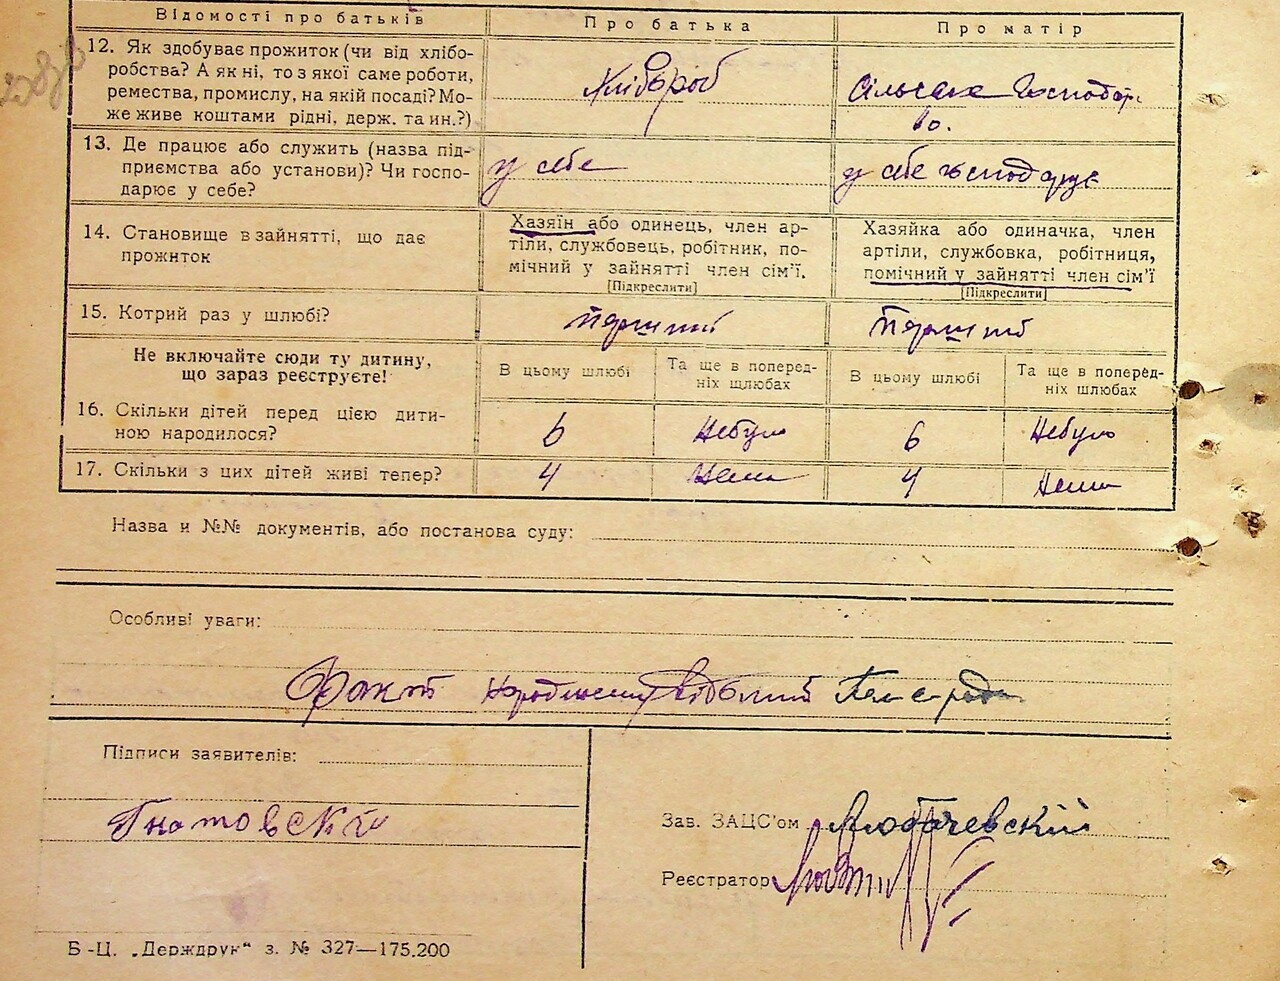 Відомості про батьків
Про батька
Про матір
12. Як здобуває прожиток (чи від хлібо-
робства? А як ні, то з якої саме роботи,
ремества, промислу, на якій посаді? Мо-
же живе коштами рідні, держ. та ин.?)
Хлібороб
Сільське Господар.
во.
13. Де працює або служить (назва під-
приємства або установи)? Чи госпо-
дарює у себе?
у себе
у себе господарує
14. Становище в зайнятті, що дає
прожиток
Хазяїн або одинець, член ар-
тіли, службовець, робітник, по-
мічний у зайнятті член сім'ї.
[Підкреслити]
Хазяйка або одиначка, член
артіли, службовка, робітниця,
помічний у зайнятті член сім'ї
[Підкреслити]
15. Котрий раз у шлюбі?
Перший
Перший
Не включайте сюди ту дитину,
що зараз реєструєте!
В цьому шлюбі
Та ще в поперед-
ніх шлюбах
В цьому шлюбі
Та ще в поперед-
ніх шлюбах
16. Скільки дітей перед цією дити-
ною народилося?
6
Небуло
6
Небуло
17. Скільки з цих дітей живі тепер?
4
Нема
4
Нема
Назва и №№ документів, або постанова суду:
Особливі уваги:
Факт
Підписи заявителів:
Гнатовский
Зав. ЗАЦС'ом Любачевский
Реєстратор
Б-Ц. „Держдрук“ з. № 327—175.200